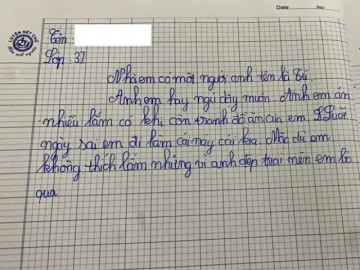 Date: No:
LUYỆN NÉT CHỮ
Tên:
Lớp: 3
Nhà em có một người anh tên là Tú.
Anh em hay ngủ dậy muộn. Anh em ăn
nhiều lắm có khi còn tranh đồ ăn của em. Suốt
ngày sai em đi làm cái này cái kia. Mặc dù em
không thích lắm nhưng vì anh đẹp trai nên em bỏ
qua